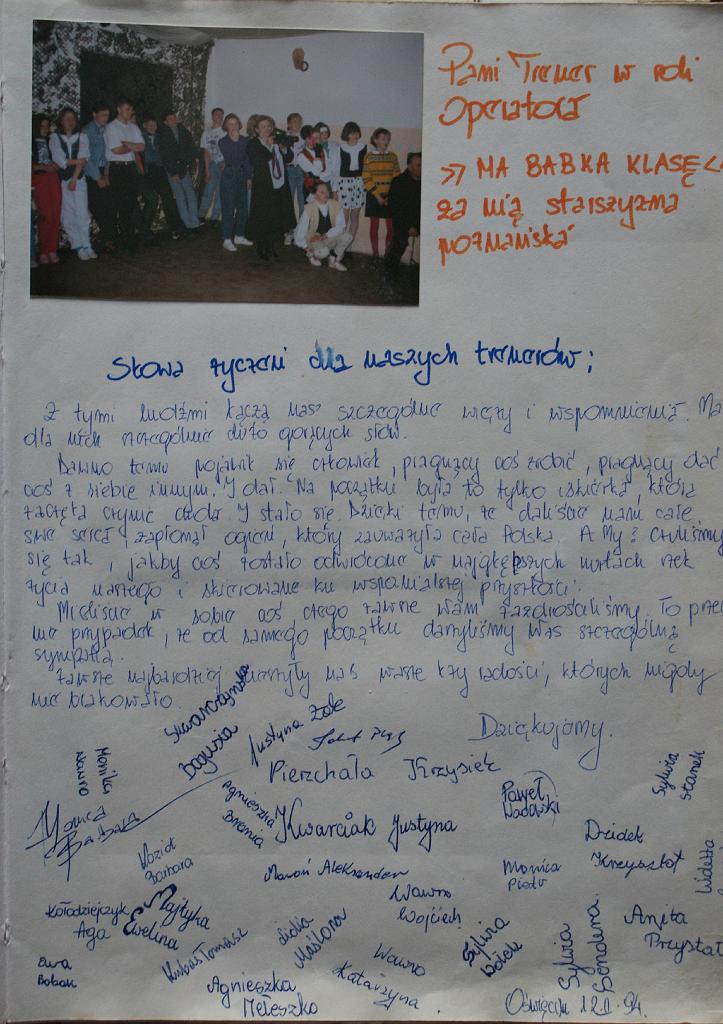 Pani Trener w roli
operatora
>> MA BABKA KLASĘ <<
za nią starszyzna
poznańska
Słowa życzeń dla naszych trenerów;
Z tymi ludźmi łączą nas szczególne więzy i wspomnienia. Ma
dla nich szczególnie dużo gorących słów.
Dawno temu pojawił się człowiek, pragnący coś zrobić, pragnący dać
coś z siebie innym. I dał. Na początku była to tylko iskierka, która
zaczęła czynić cuda. I stało się. Dzięki temu, że daliście nam całe
swe serca, zapłonął ogień, który zauważyła cała Polska. A My? Czuliśmy
się tak, jakby coś zostało odwrócone w najgłębszych nurtach rzek
życia naszego i skierowane ku wspanialszej przyszłości.
Mieliście w sobie coś czego zawsze Wam zazdrościliśmy. To prze
nie przypadek, że od samego początku darzyliśmy Was szczególną
sympatią.
Zawsze najbardziej cieszyły nas wasze łzy radości, których nigdy
nie brakowało.
Dziękujemy.
Swarczyńska
Bogusia
Justyna Żak
Pierzchała Krzysiek
Monika
Wawro
Agnieszka
Bronia
Paweł
Wadowski
Sylwia
Stanek
Barbara
Kwarciak Justyna
Dzidek
Krzysztof
Kozioł
Barbara
Maroń Aleksander
Monica
Piedo
Wioletta
Kołodziejczyk
Aga
Majtyka
Ewelina
Wawro
Wojciech
Anita
Przystał
Ewa
Bobak
Kubas Tomasz
Lidia
Maślona
Sylwia
Bolek
Sylwia
Gondura
Wawro
Katarzyna
Agnieszka
Meleszko
Oświęcim 12.II.94.